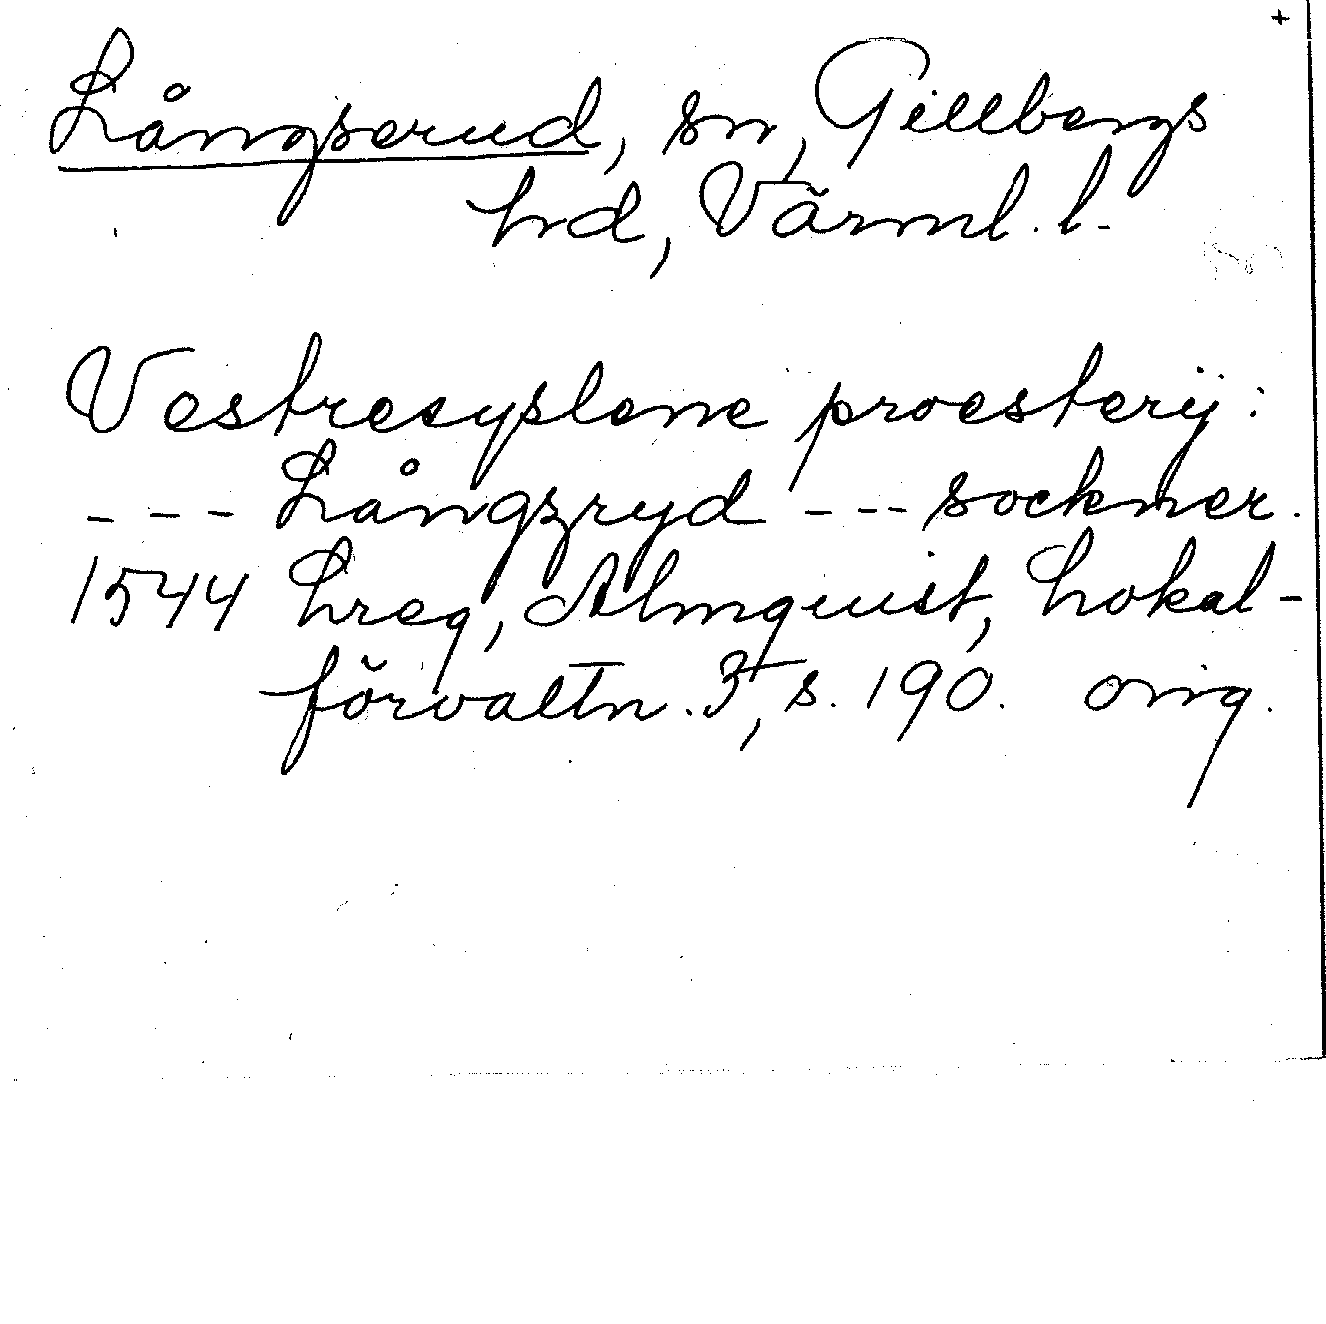 +
Långserud, sn, Gillbergs
hd, Värml. l.
Vestresyslene proesterij:
--- Långzryd --- sockner.
1544 hreg, Almquist, Lokal-
förvaltn. 3, s. 190. orig.